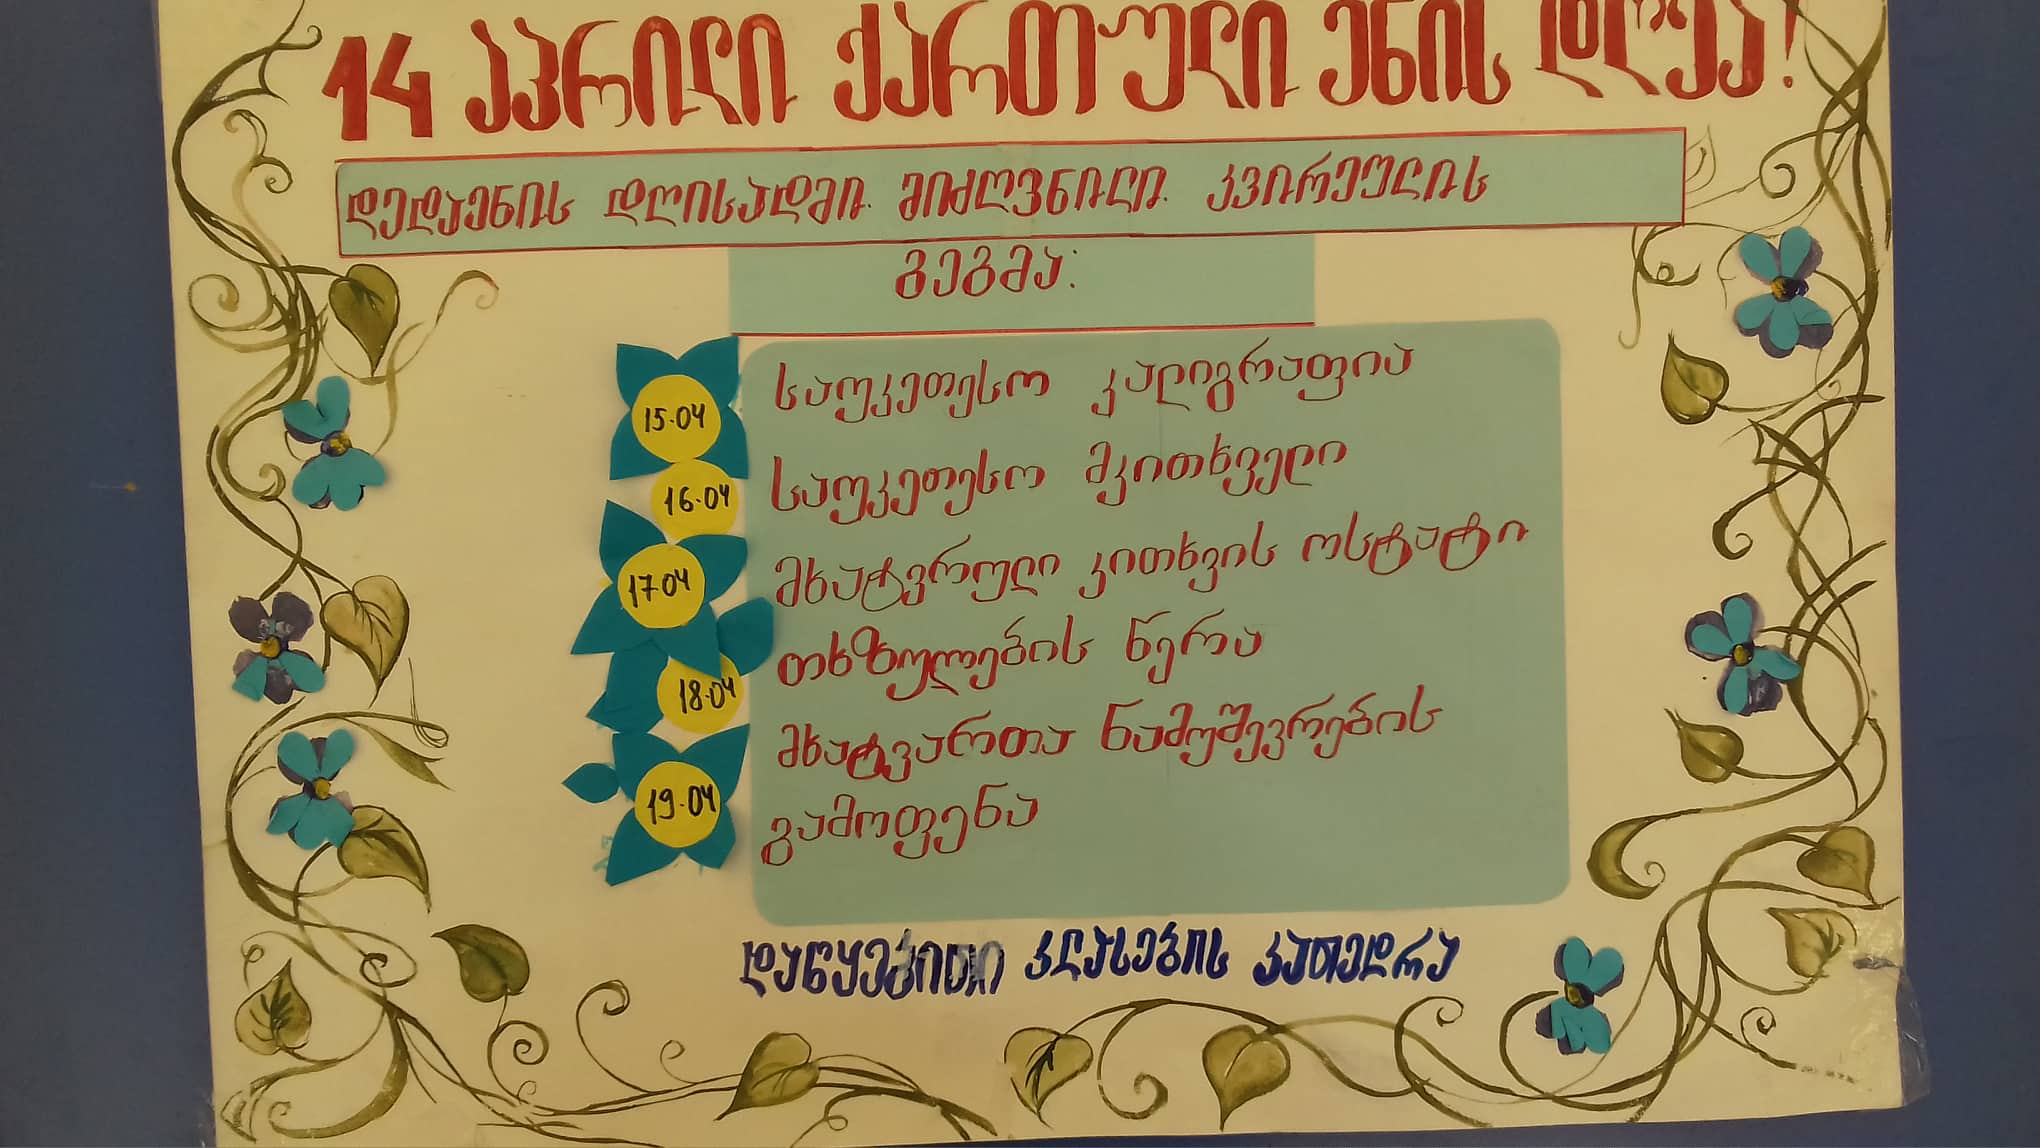 14 აპრილი ქართული ენის დღეა!
დედაენის დღისადმი მიძღვნილი კვირეულის
გეგმა:
15.04 საუკეთესო კალიგრაფია
16.04 საუკეთესო მკითხველი
17.04 მხატვრული კითხვის ოსტატი
18.04 თხზულების წერა
19.04 მხატვართა ნამუშევრების
გამოფენა
დაწყებითი კლასების კათედრა